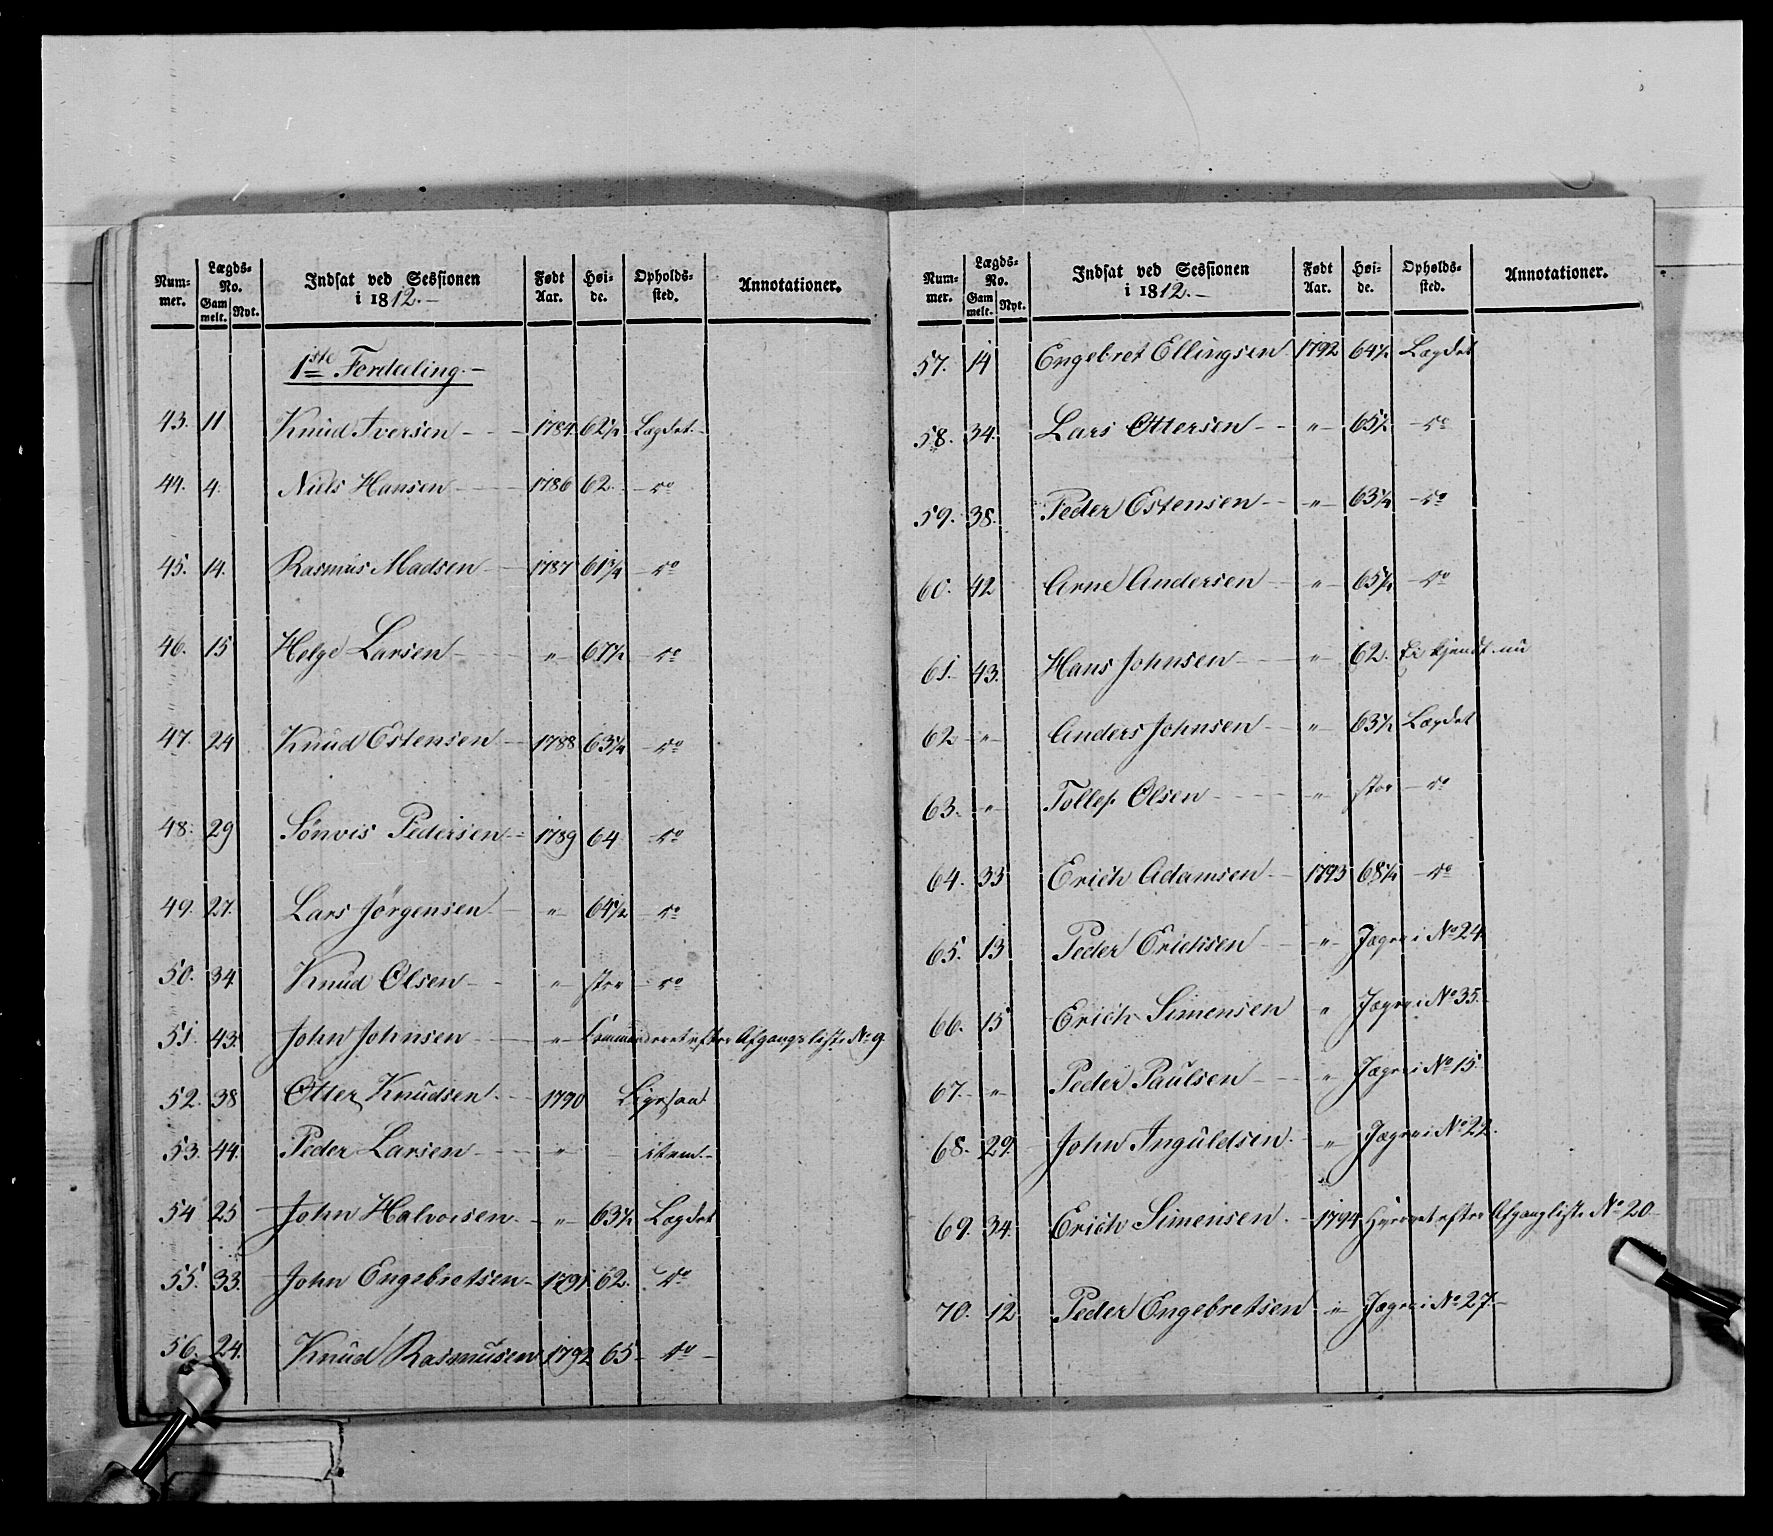 Num-mer. Lægds-No. Gam melt. Nyt. Indsat ved Sessionen i 1812.- Født Aar. Høi-de. Opholds-sted. Annotationer.
1ste Fordeeling.-
43. 11 Knud Iversen - 1784 62½ Lægdet -
44. 4. Niels Hansen - 1786 62. - do
45. 14. Rasmus Madsen - 1787 61¾ - do
46. 15 Helge Larsen - " 67½ - do
47. 24 Knud Estensen - 1788 63¼ - do
48. 29 Sönvis Pedersen - 1789 64 - do
49. 27. Lars Jørgensen - " 64½ - do
50. 34 Knud Olsen - " stor - do
51. 43. John Johnsen - " Commanderet efter Afgangsliste No 9
52. 38 Otter Knudsen - 1790
53. 44. Peder Larsen - " item.-
54 25 John Halvorsen - " 63½ Lægdet
55. 33. John Engebretsen - 1791 62. do
56. 24. Knud Rasmusen 1792 65 - do -
Num-mer. Lægds-No. Gam melt. Nyt. Indsat ved Sessionen i 1812.- Født Aar. Høi-de. Opholds-sted. Annotationer.
57. 14 Engebret Ellingsen 1792 64½ Lægdet
58. 34. Lars Ottersen - " 65½ - do
59. 38. Peder Estensen - " 63¼ - do
60. 42 Arne Andersen - " 65¼ - do
61. 43. Hans Johnsen - " 62. Ei kjendt nu
62 " Anders Johnsen - " 63½ Lægdet
63. " Tollef Olsen - " stor - do
64. 33 Erich Adamsen - 1793 68¼ - do
65. 13 Peder Erichsen - " Jæger i No 24
66. 15 Erich Simensen " Jæger i No 35.
67. " Peder Paulsen - " Jæger i No 15.
68. 29. John Inguldsen. " Jæger i No 22.
69. 34. Erich Simensen. - 1794 Hyrret efter Afgangliste No 20
70. 12 Peder Engebretsen " Jæger i No 27.-